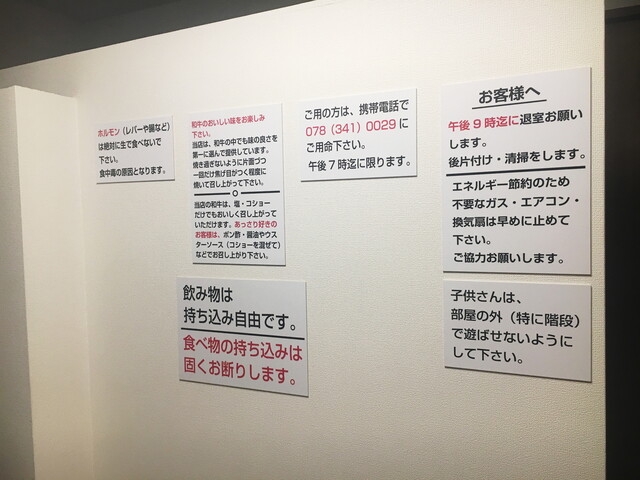 ホルモン（レバーや腸など）
は絶対に生で食べないで
下さい。
食中毒の原因となります。
和牛のおいしい味をお楽しみ
下さい。
当店は、和牛の中でも味の良さを
第一に選んで提供しています。
焼き過ぎないように片面づつ
一回だけ焦げ目がつく程度に
焼いて召し上がって下さい。
当店の和牛は、塩・コショー
だけでもおいしく召し上がって
いただけます。あっさり好きの
お客様は、ポン酢・醤油やウス
ターソース（コショーを混ぜて）
などでお召し上がり下さい。
ご用の方は、携帯電話で
078（341）0029に
ご用命下さい。
午後7時迄に限ります。
お客様へ
午後9時迄に退室お願い
します。
後片付け・清掃をします。
エネルギー節約のため
不要なガス・エアコン・
換気扇は早めに止めて
下さい。
ご協力お願いします。
飲み物は
持ち込み自由です。
食べ物の持ち込みは
固くお断りします。
子供さんは、
部屋の外（特に階段）
で遊ばせないように
して下さい。